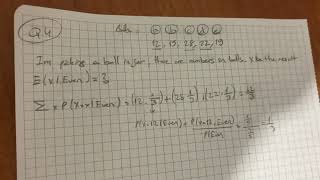 Q4 Balls: a b c d e
12, 15, 28, 22, 19
Im picking a ball in jar, there are numbers on balls. X be the result
E(X|Even) = ?
Σ x P(X=x|Even) = (12·1/3)+(28·1/3)+(22·1/3) =
P(X=12|Even) = P(X=12, Even)/P(Even) = = 1/3